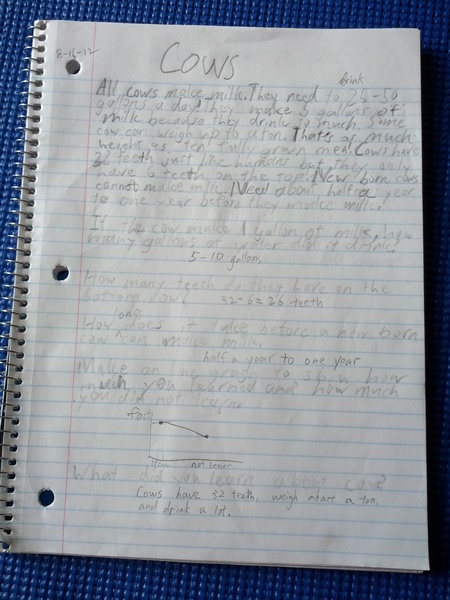 8-16-12
Cows
drink
All cows make milk. They need to 25-50
gallons a day! They make 5 gallons of
milk because they drink to much. Some
cow can weigh up to a ton. That's as much
weight as ten fully grown men. Cows have
32 teeth just like humans but they
have 6 teeth on the top. New born cows
cannot make milk. Need about half a year
to one year before they make milk.
If the cow make 1 gallon of milk, how
many gallons of water did it drink
5-10 gallons
How many teeth do they have on the
bottom row. 32-6=26 teeth
long
How does it take before a new born
cow can make milk.
half a year to one year
Make an line graph to show how
much you learned and how much
you did not learn.
not
What did you learn about cows?
Cows have 32 teeth, weigh a ton,
and drink a lot.